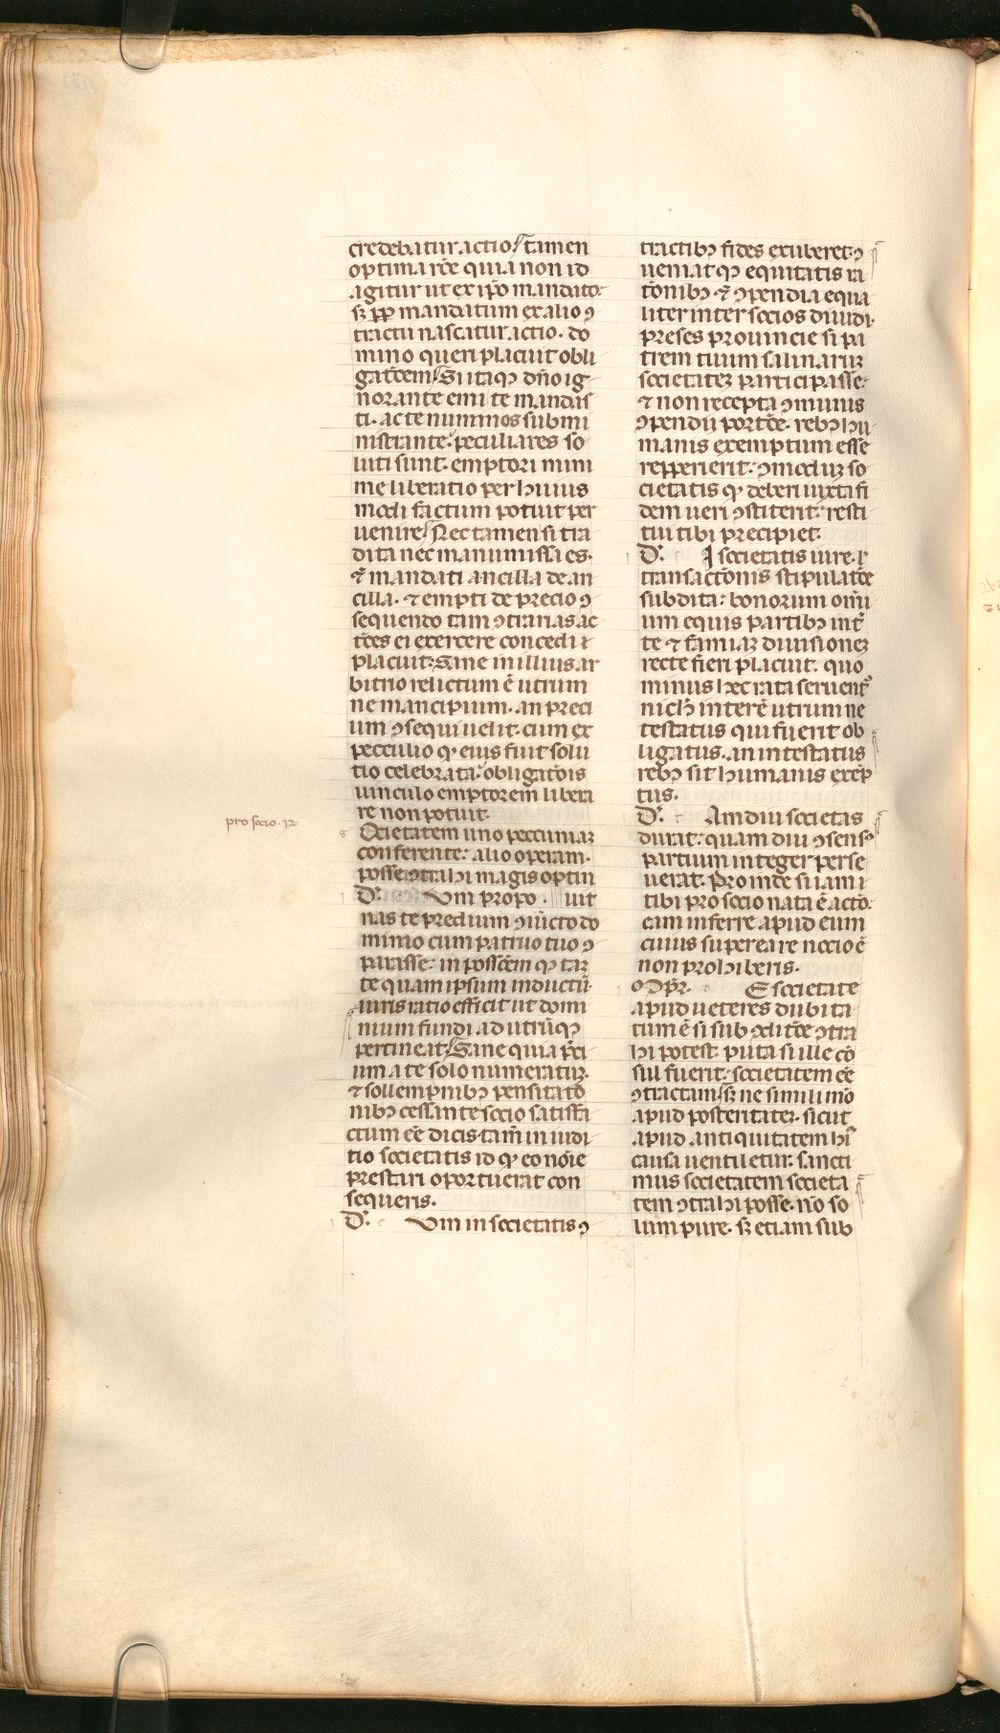 credebatur actio/ tamen
optima rōe quia non id
agitur ut ex ip̄o mandato·
sꝫ ꝓp̄ mandatum ex alio ↄ
tractu nascatur actio· do
mino queri placuit obli
gatōem/ Si itaqꝫ dn̄o ig
norante emi te mandas
ti· ac te nummos submi
nistrante· peculiares so
luti sunt· emptori mini
me liberatio per huius
modi factum potuit per
uenire/ Nec tamen si tra
dita nec manumissa es·
⁊ mandati ancilla de an
cilla· ⁊ empti de precio ↄ
sequendo tam ↄtrarias ac
tōes ei exercere concedi
placuit· Sane in illius ar
bitrio relictum ē utrum
ne mancipium· an preci
um ↄsequi uelit· cum ex
peculio qꝫ eius fuit solu
tio celebrata· obligatōis
uinculo emptorem libera
re non potuit·
pro socio· r̄
s Ocietatem uno pecuniaꝫ
conferente· alio operam·
posse ↄtrahi magis optin
D· Vm propo· uit
nas te predium ↄiūcto do
minio cum patruo tuo ↄ
parasse· in possc̄em qꝫ taꝫ
te quam ipsum inductū·
iuris ratio efficit ut domi
nium fundi ad utrūqꝫ
pertineat/ Sane quia p̄ci
um a te solo numeratuꝫ·
⁊ sollempnibꝫ pensitatō
nibꝫ cessante socio satisfa
ctum eē dicis· tam̄ in iudi
tio societatis id qꝫ eo noīe
prestari oportuerat con
sequeris·
D· Vm in societatis ↄ
tractibꝫ fides exuberet· ↄ
ueniat qꝫ equitatis ra
tōnibꝫ ⁊ ↄpendia equa
liter inter socios diuidi·
preses prouincie si pa
trem tuum salinaruꝫ
societateꝫ participasse·
⁊ non recepta ↄmunis
ↄpendii portōe· rebꝫ hu
manis exemptum esse
repperierit· ↄmodūꝫ so
cietatis qꝫ deberi iuxta fi
dem ueri ↄstiterit· resti
tui tibi precipiet·
D· I societatis iure·
transactōnis stipulatōe
subdita· bonorum omni
um equis partibꝫ int̄
te ⁊ famiaꝫ diuisioneꝫ
recte fieri placuit· quo
minus hec rata seruent᷑
nichꝫ interē utrum ne
testatus qui fuerit ob
ligatus· an intestatus
rebꝫ sit humanis exēp
tus·
D· Am diu societas
durat· quam diu ↄsensꝰ
partium integer perse
uerat· Proinde si iam
tibi pro socio nata ē actō·
eam inferre apud eum
cuius super ea re nocio ē
non prohiberis·
D p̄r· E societate
apud ueteres dubita
tum ē si sub ↄditōe ↄtra
hi potest· puta si ille cō
sul fuerit· societatem eē
ↄtractam/ sꝫ ne simili mō
apud posteritateꝫ· sicut
apud antiquitatem hī
causa uentiletur· sanci
mus societatem societa
tem ↄtrahi posse· nō so
lum pure· sꝫ etiam sub